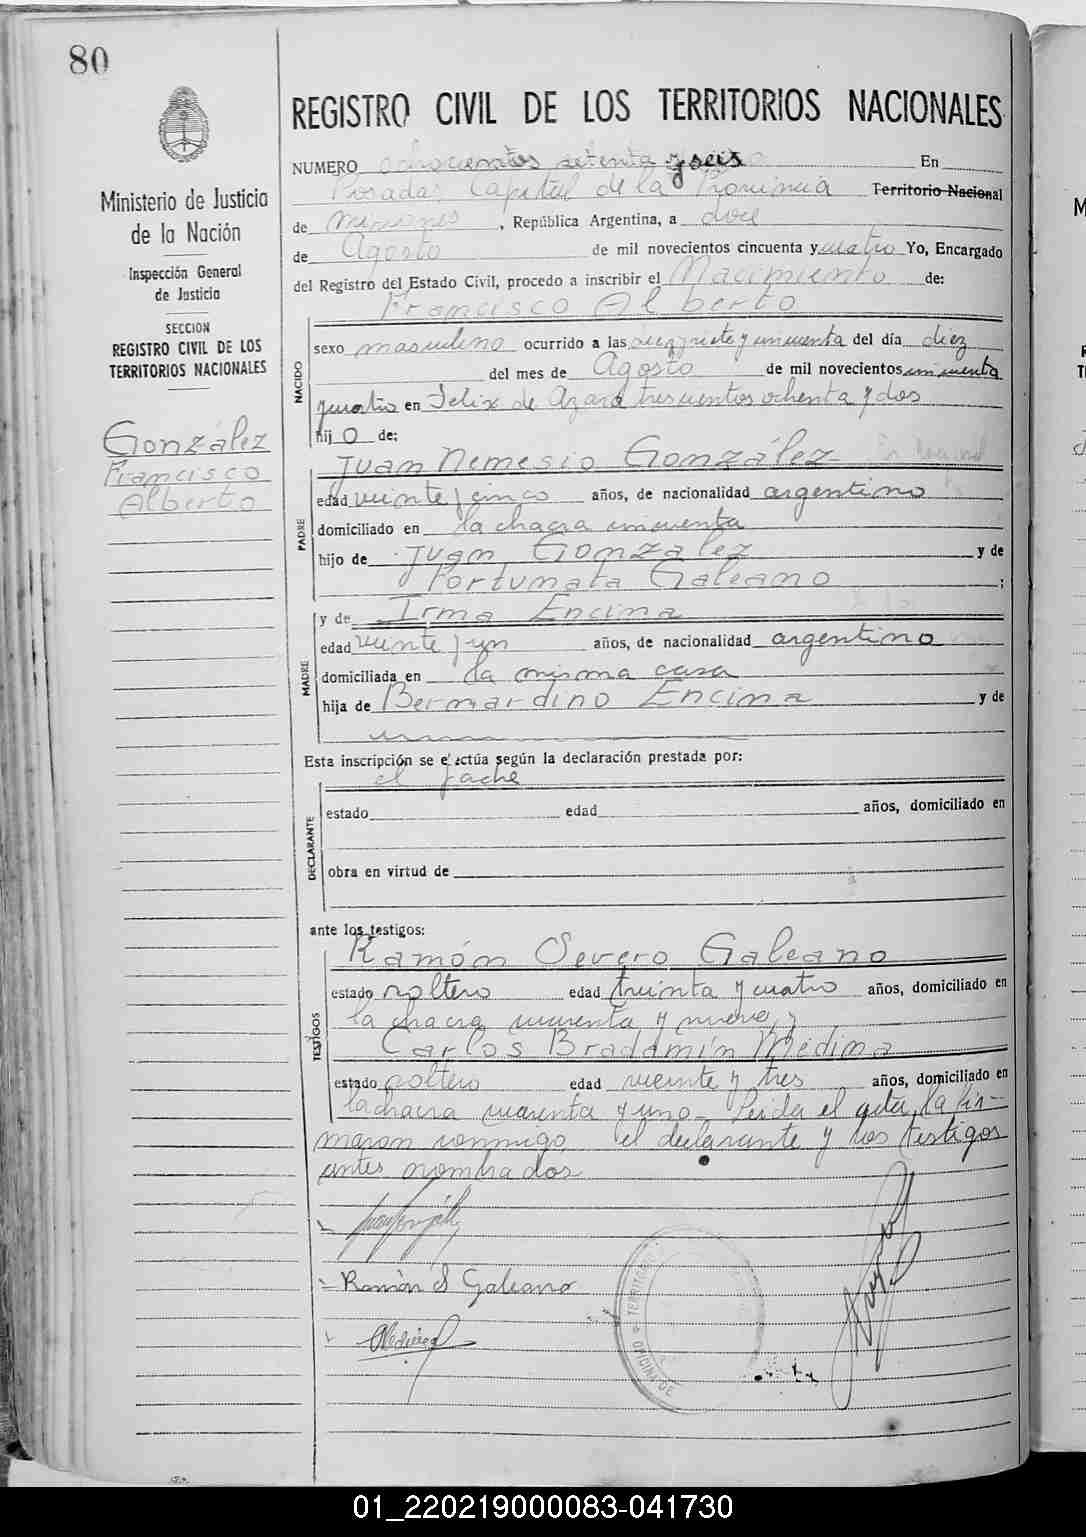 80
Ministerio de Justicia
de la Nación
Inspección General
de Justicia
SECCION
REGISTRO CIVIL DE LOS
TERRITORIOS NACIONALES
González
Francisco
Alberto
REGISTRO CIVIL DE LOS TERRITORIOS NACIONALES
NUMERO ochocientos setenta y seis En
Posadas Capital de la Provincia Territorio Nacional
de Misiones, República Argentina, a doce
de Agosto de mil novecientos cincuenta y cuatro Yo, Encargado
del Registro del Estado Civil, procedo a inscribir el Nacimiento de:
Francisco Alberto
NACIDO
sexo masculino ocurrido a las diez y cincuenta del día diez
del mes de Agosto de mil novecientos cincuenta
y cuatro en Felix de Azara trescientos ochenta y dos
hij o de:
PADRE
Juan Nemesio González
edad veinte y cinco años, de nacionalidad argentino
domiciliado en la chacra cincuenta
hijo de Juan González y de
Fortunata Galeano;
MADRE
y de Irma Encina
edad veinte y un años, de nacionalidad argentina
domiciliada en la misma casa
hija de Bernardino Encina y de
Esta inscripción se efectúa según la declaración prestada por:
el padre
DECLARANTE
estado edad años, domiciliado en
obra en virtud de
ante los testigos:
TESTIGOS
Ramón Severo Galeano
estado soltero edad treinta y cuatro años, domiciliado en
la chacra cuarenta y nueve, y
Carlos Bradamín Medina
estado soltero edad veinte y tres años, domiciliado en
la chacra cuarenta y uno - Leida el acta, la fir-
maron conmigo, el declarante y los testigos
antes nombrados
Ramón S Galeano
OFICINA DE
TERRITORIO
01_220219000083-041730